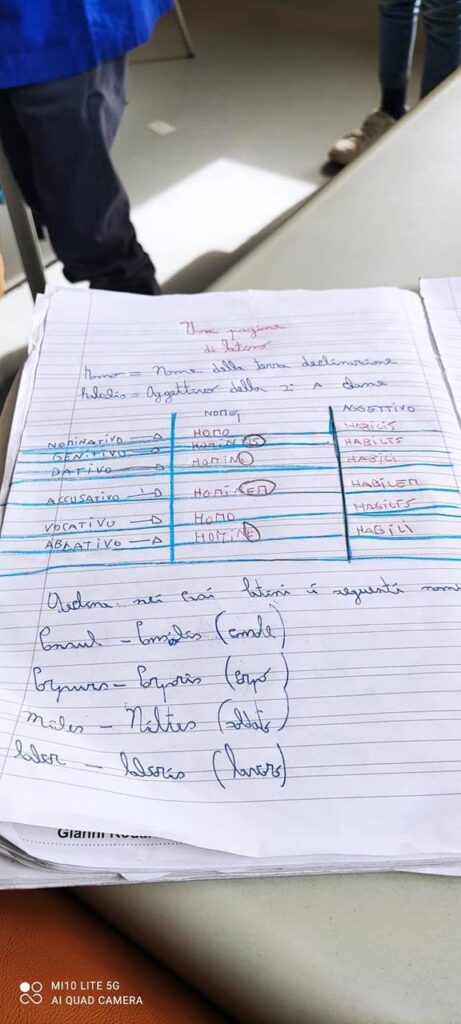 Una pagina
di latino
homo = Nome della terza declinazione
habilis = Aggettivo della 2ª A classe
NOMEI AGGETTIVO
NOMINATIVO → HOMO HABILIS
GENITIVO → HOMINIS HABILIS
DATIVO → HOMINI HABILI
ACCUSATIVO → HOMINEM HABILEM
VOCATIVO → HOMO HABILIS
ABLATIVO → HOMINE HABILI
Declina nei casi latini i seguenti nomi
Consul - Consulis (console)
- Corporis (corpo)
Miles - (soldato)
labor - laboris (lavoro)
Gianni
MI10 LITE 5G
AI QUAD CAMERA